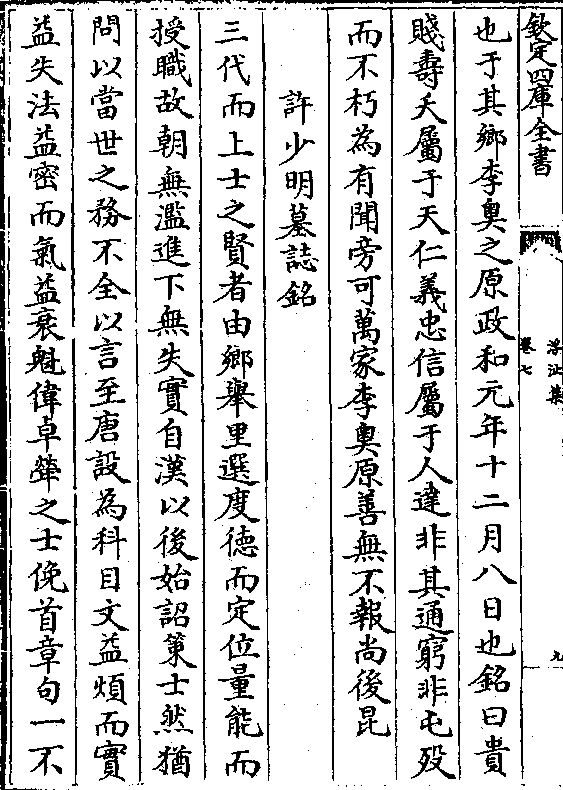 欽定四庫全書
浮沚集
卷七
九
也于其鄉李奥之原政和元年十二月八日也銘曰貴
賤壽夭屬于天仁義忠信屬于人達非其通窮非屯殁
而不朽為有聞旁可萬家李奥原善無不報尚後昆
許少明墓誌銘
三代而上士之賢者由鄉舉里選度徳而定位量能而
授職故朝無濫進下無失實自漢以後始詔策士然猶
問以當世之務不全以言至唐設為科目文益煩而實
益失法益密而氣益衰魁偉卓犖之士俛首章句一不